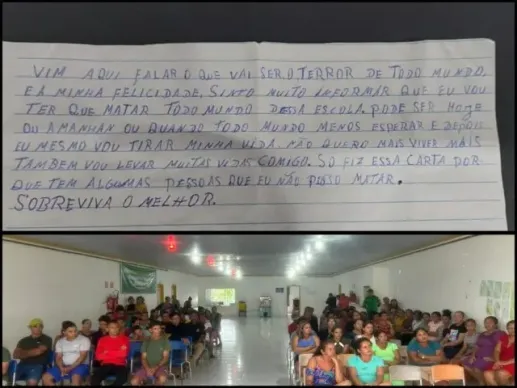 VIM AQUI FALAR O QUE VAI SER O TERROR DE TODO MUNDO,
E A MINHA FELICIDADE, SINTO MUITO INFORMAR QUE EU VOU
TER QUE MATAR TODO MUNDO DESSA ESCOLA. PODE SER HOJE
OU AMANHÃN OU QUANDO TODO MUNDO MENOS ESPERAR E DEPOIS
EU MESMO VOU TIRAR MINHA VIDA. NÃO QUERO MAIS VIVER MAIS
TAMBEM VOU LEVAR MUITAS VIDAS COMIGO. SO FIZ ESSA CARTA POR
QUE TEM ALGUMAS PESSOAS QUE EU NÃO POSSO MATAR.
SOBREVIVA O MELHOR.